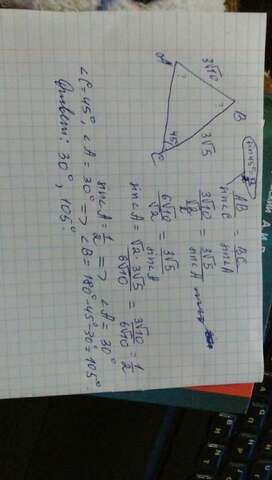 B
3√10
3√5
A
?
?
45°
C
sin45°
AB/sin∠C = BC/sin∠A
3√10/(√2/2) = 3√5/sin∠A
6√10/√2 = 3√5/sin∠A
sin∠A = √2·3√5/6√10 = 3√10/6√10 = 1/2
sin∠A = 1/2 => ∠A = 30°
∠C = 45°, ∠A = 30° => ∠B = 180°-45°-30° = 105°.
Ответ: 30°, 105°.